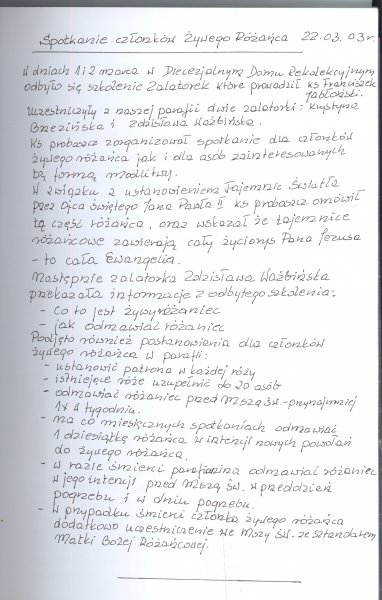 Spotkanie członków Żywego Różańca 22.03.03r.
W dniach 1 i 2 marca w Diecezjalnym Domu Rekolekcyjnym
odbyło się szkolenie Zelatorek które prowadził ks Franciszek
Jabłoński.
Uczestniczyły z naszej parafii dwie zelatorki: Krystyna
Brezińska i Zdzisława Waźbińska.
Ks proboszcz zorganizował spotkanie dla członków
żywego różańca jak i dla osób zainteresowanych
tą formą modlitwy.
W związku z ustanowieniem Tajemnic Światła
przez Ojca Świętego Jana Pawła II ks proboszcz omówił
tą część różańca, oraz wskazał że tajemnice
różańcowe zawierają cały życiorys Pana Jezusa
- to cała Ewangelia.
Następnie zelatorka Zdzisława Waźbińska
przekazała informacje z odbytego szkolenia:
- co to jest żywy różaniec
- jak odmawiać różaniec
Podjęto również postanowienia dla członków
żywego różańca w parafii:
- ustanowić patrona w każdej róży
- istniejące róże uzupełnić do 20 osób
- odmawiać różaniec przed Mszą Św. - przynajmniej
1x w tygodniu.
- na co miesięcznych spotkaniach odmawiać
1 dziesiątkę różańca w intencji nowych powołań
do żywego różańca.
- w razie śmierci parafianina odmawiać różaniec
w jego intencji przed Mszą Św. w przeddzień
pogrzebu i w dniu pogrzebu.
- w przypadku śmierci członka żywego różańca
dodatkowo uczestniczenie we Mszy Św. ze sztandarem
Matki Bożej Różańcowej.